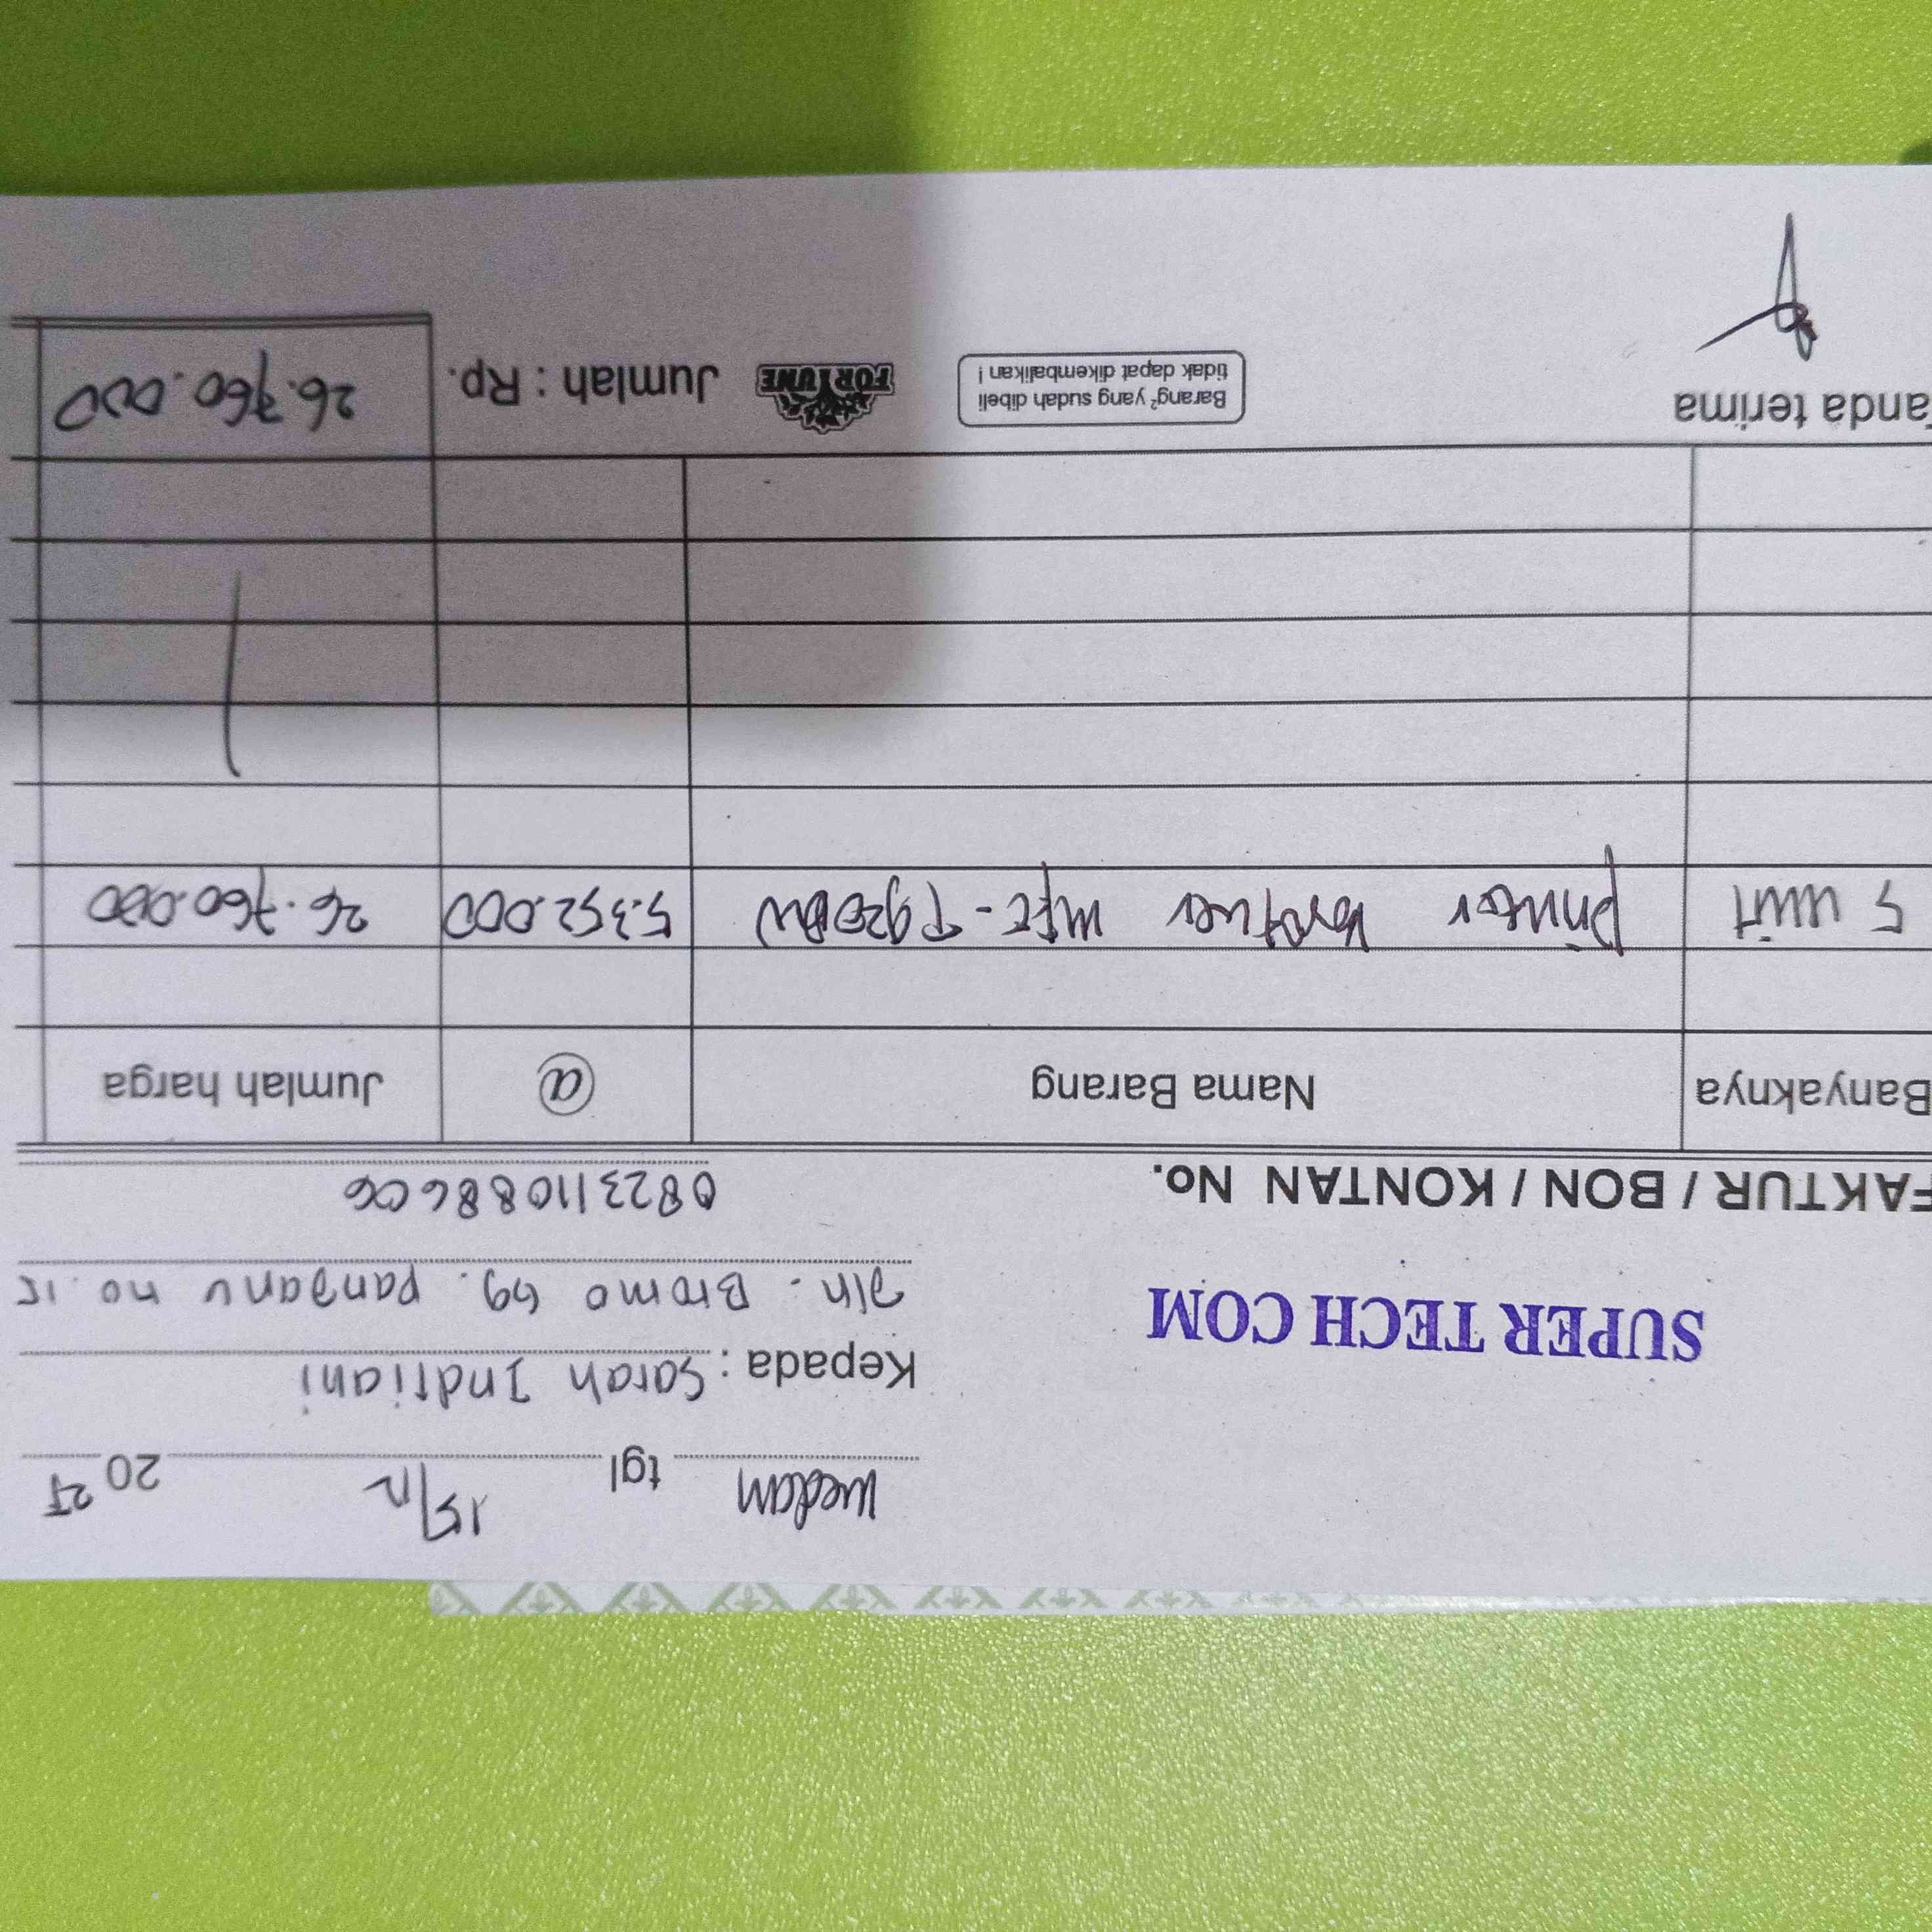 Medan tgl 15/12 2025
Kepada : Sarah Indriani
SUPER TECH COM
Jln. Bromo Gg. Panganu no. 15
082311088606
FAKTUR / BON / KONTAN No.
Banyaknya Nama Barang @ Jumlah harga
5 unit Printer brother MFC-T920DW 5.352.000 26.760.000
Tanda terima
Barang² yang sudah dibeli
tidak dapat dikembalikan !
FORTUNE
Jumlah : Rp. 26.760.000